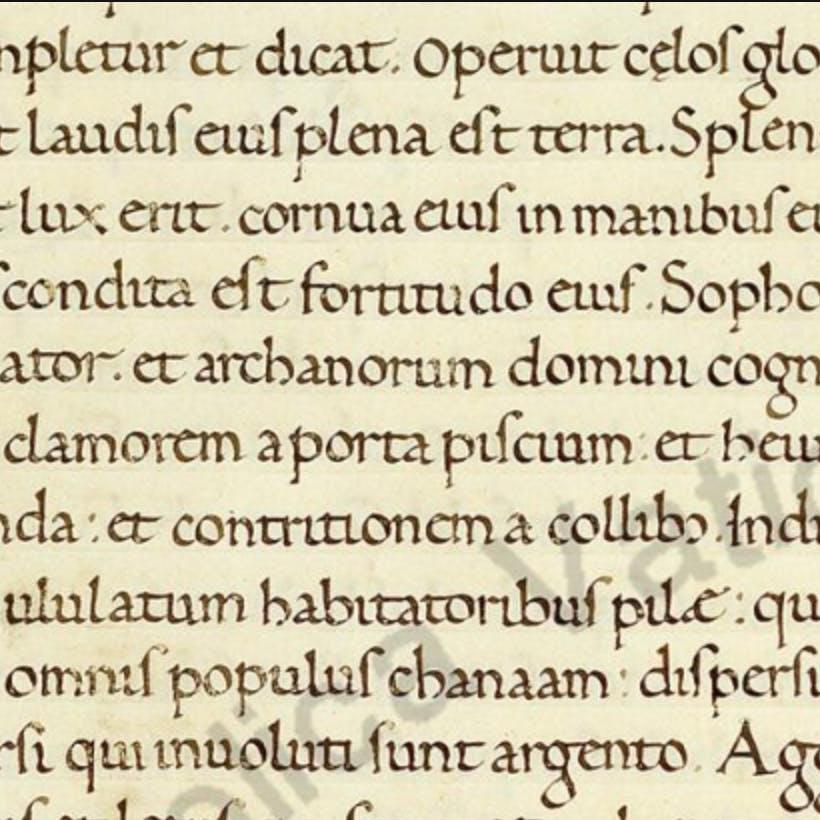 mpletur et dicat. Operuit cęlos glo
t laudis eius plena est terra. Splen
t lux erit. cornua eius in manibus ei
scondita est fortitudo eius. Sopho
ator. et archanorum domini cogn
clamorem a porta piscium: et heiu
nda: et contritionem a collibɔ. Indi
ululatum habitatoribus pilæ: qu
omnis populus chanaam: dispersi
rsi qui inuoluti sunt argento. Agg